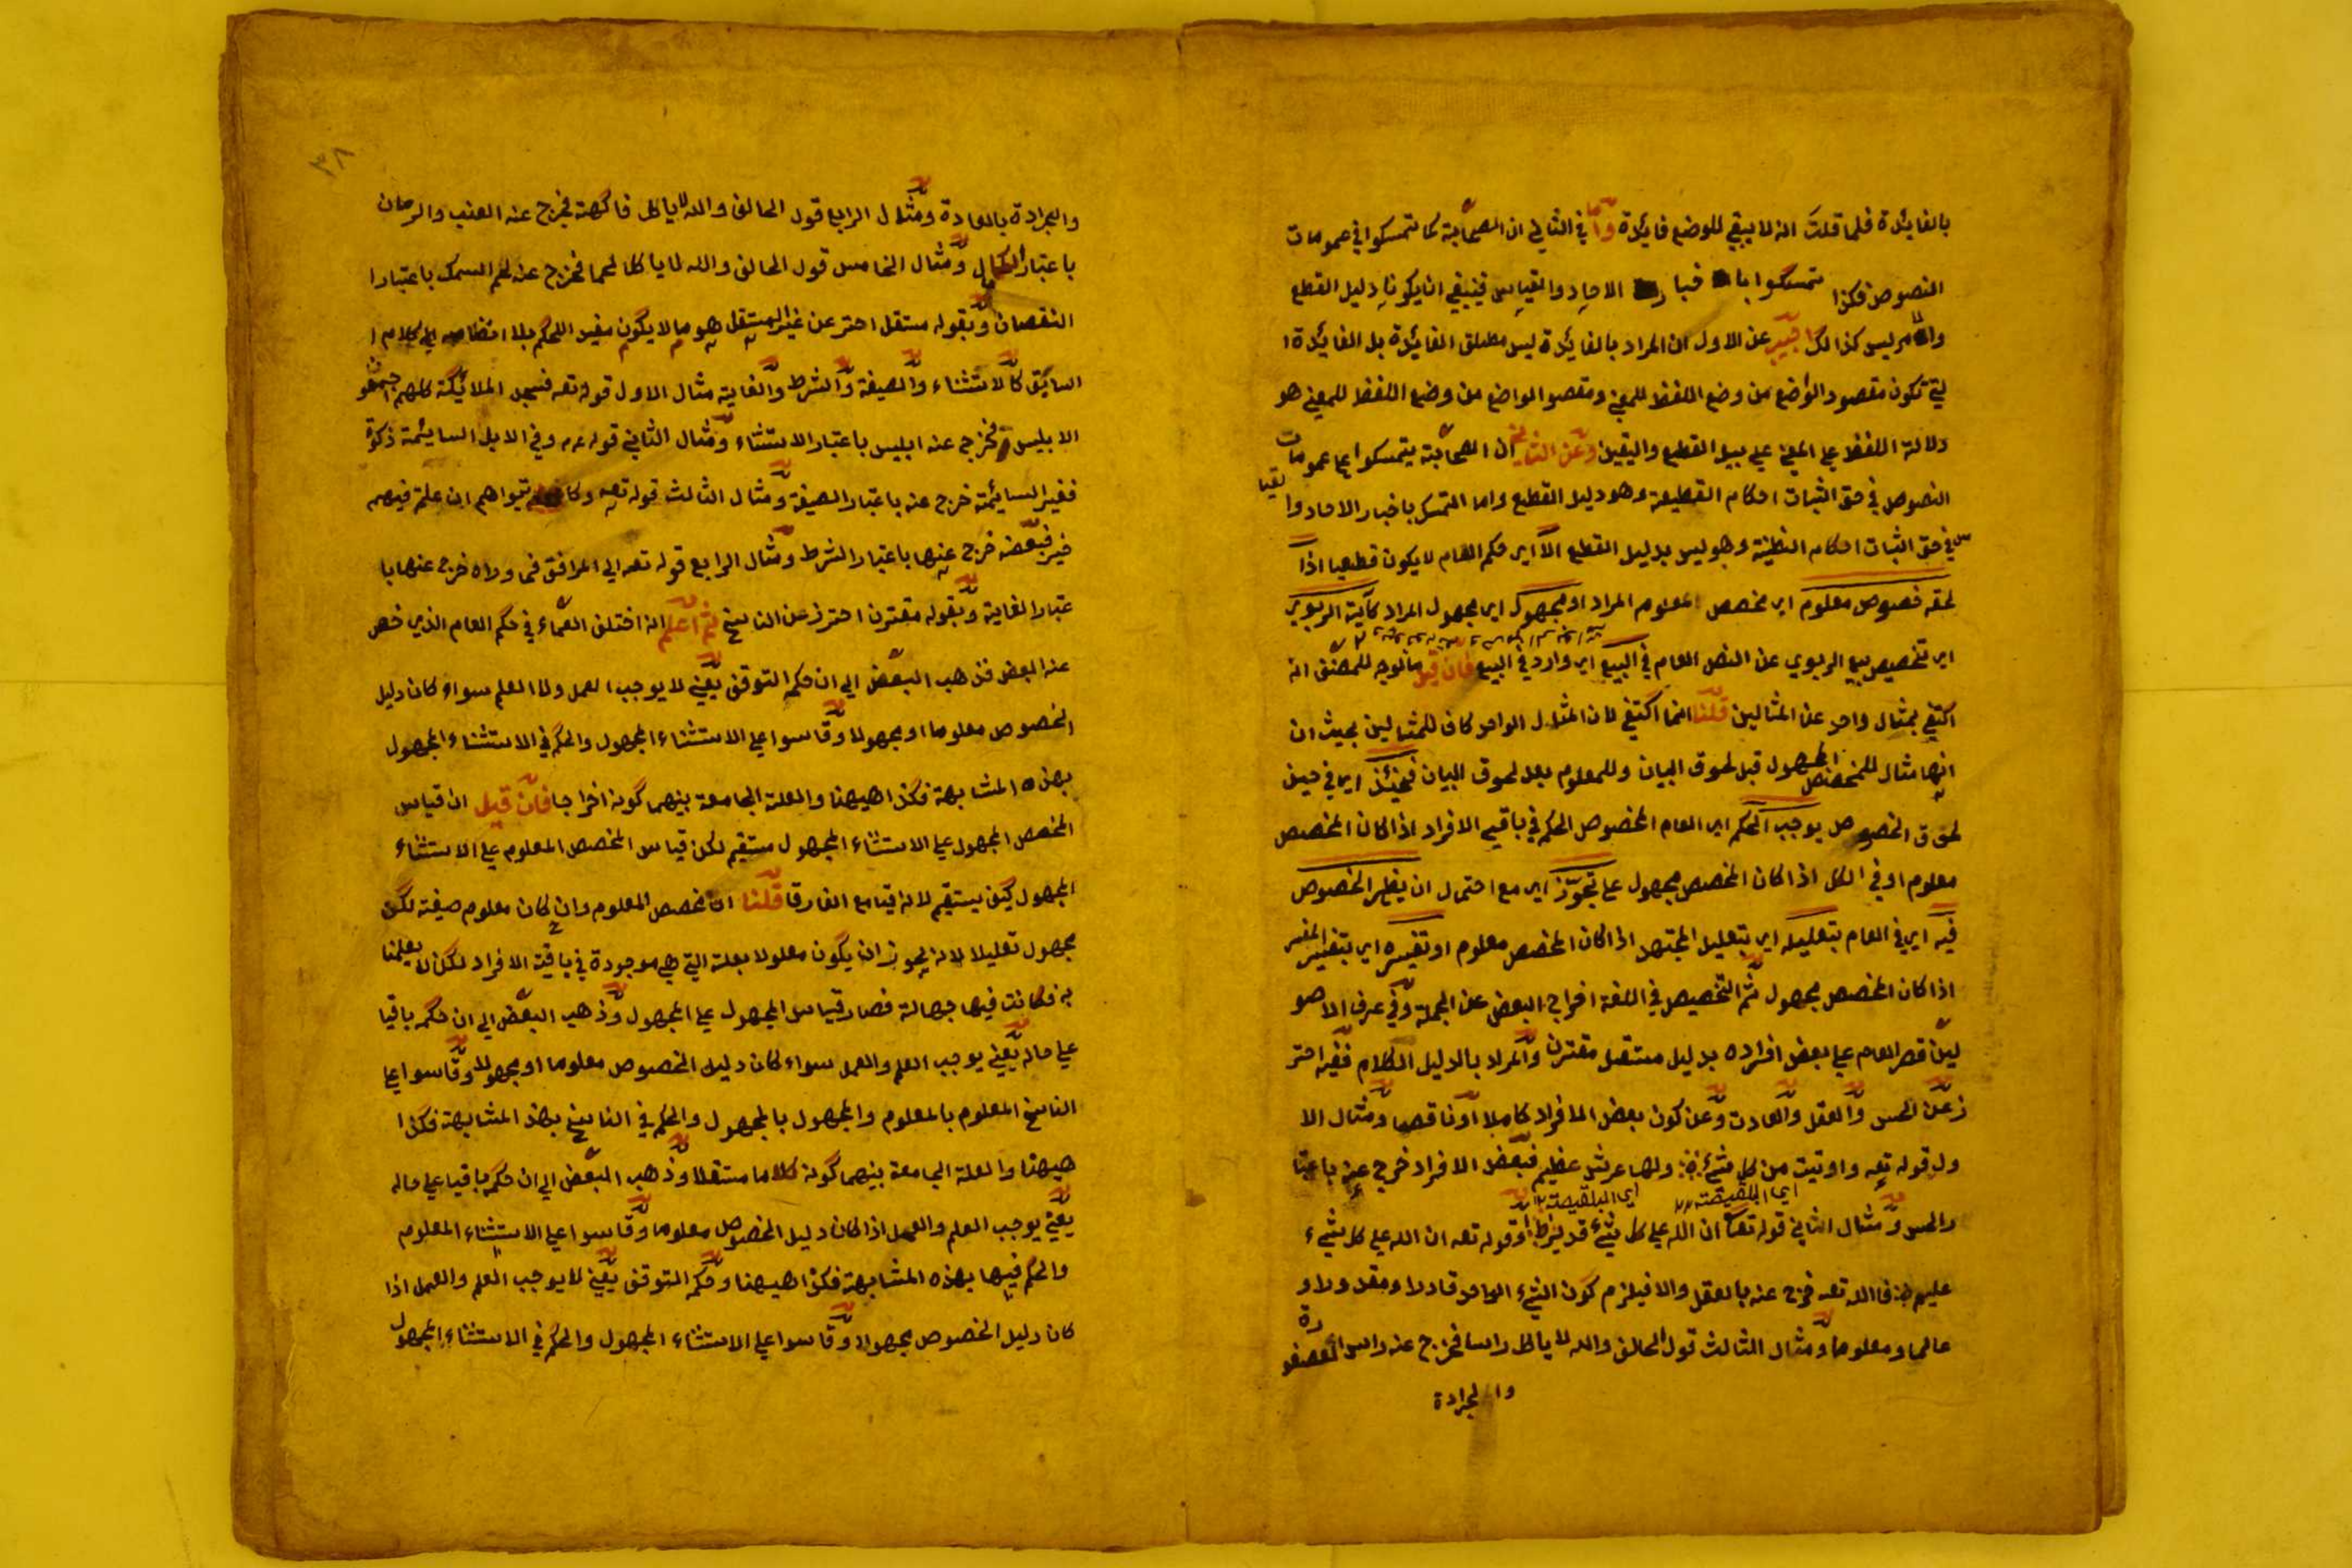 بالفايدة فلما قلت انه لا يبقي للوضع فايدة واما في الثاني ان الصحابة كما تمسكوا في عمومات
النصوص فكذا تمسكوا با خبا ر الاحاد والقياس فينبغي ان يكونا دليل القطع
والامر ليس كذالك اجيب عن الاول ان المراد بالفايدة ليس مطلق الفايدة بل الفايدة ا
لتي تكون مقصود الواضع من وضع اللفظ للمعني ومقصو الواضع من وضع اللفظ للمعني هو
دلالة اللفظ علي المعني علي سبيل القطع واليقين وعن الثاني ان الصحابة يتمسكوا علي عمومات
النصوص في حق اثبات احكام القطيعة وهو دليل القطع واما التمسك باخبار الاحاد وا لقيا
س في حق اثبات احكام الظنية وهو ليس بدليل القطع الا اي حكم العام لا يكون قطعيا اذا
لحقه خصوص معلوم اي مخصص المعلوم المراد او مجهول اي مجهول المراد كآية الربوي
اي تخصيص بيع الربوي عن النص العام في البيع اي وارد في البيع فان قيل ما لوجه للمصنف انه
اكتفي بمثال واحد عن المثالين قلنا انما اكتفي لان المثال الواحد كاف للمثالين بحيث ان
انها مثال للمخصص المجهول قبل لحوق البيان وللمعلوم بعد لحوق البيان فحينئذ اي في حين
لحوق الخصوص يوجب الحكم اي العام المخصوص الحكم في باقي الافراد اذا كان المخصص
معلوم او في الكل اذا كان المخصص مجهول علي تجوز اي مع احتمال ان يظهر الخصوص
فيه اي في العام بتعليله اي بتعليل المجتهد اذا كان المخصص معلوم او تفسيره اي بتفسير المفسر
اذا كان المخصص مجهول ثم التخصيص في اللغة اخراج البعض عن الجملة وفي عرف الاصو
ليين قصر العام علي بعض افراده بدليل مستقل مقترن والمراد بالدليل الكلام ففيه احتر
ز عن الحس والعقل والعادت وعن كون بعض الافراد كاملا او ناقصا ومثال الا
ول قوله تعه واوتيت من كل شيء ولها عرش عظيم فبعض الافراد خرج عنه باعتبا
اي البلقيصة اي البلقيصة ١٢
والحس ومثال الثاني قوله تعا ان الله علي كل شيء قدير وقوله تعه ان الله علي كل شيء
عليم فا الله تعه خرج عنه بالعقل والا فيلزم كون الشيء الواحد قادرا ومقدورا و
عالما ومعلوما ومثال الثالث قول الحالف والله لا ياكل راسا فخرج عنه راس العصفو رة
والجرادة
٣٨
والجرادة بالعادة ومثال الرابع قول الحالف والله لا ياكل فاكهة فخرج عنه العنب والرمان
باعتبار الكمال ومثال الخامس قول الحالف والله لا ياكل لحما فخرج عنه لحم السمك باعتبار ا
النقصان وبقوله مستقل احتر عن غير المستقل هو ما لا يكون مفيد الحكم بلا انضامه الي كلام ا
السابق كالاستثناء والصيفة والشرط والغاية مثال الاول قوله تعه فسجد الملائكة كلهم اجمعون
الا بليس فخرج عنه ابليس باعتبار الاستثناء ومثال الثاني قوله عم وفي الابل السائمة ذكوة
فغير السائمة خرج عنه باعتبار الصيفة ومثال الثالث قوله تعه وكاتبواهم ان علمتم فيهم
خير فبعضه خرج عنها باعتبار الشرط ومثال الرابع قوله تعه الي المرافق فما وراه خرج عنها با
عتبار الغاية وبقوله مقترن احترز عن الناسخ ثم اعلم انه اختلف العلماء في حكم العام الذي خص
عنه البعض فذهب البعض الي ان حكمه التوقف يعني لا يوجب العمل ولا العلم سواء كان دليل
الخصوص معلوما او مجهولا وقاسوا علي الاستثناء المجهول والحكم في الاستثناء المجهول
بهذه المشابهة فكذا هيهنا والعلة الجامعة بينهما كونه اخراجا فان قيل ان قياس
المخصص المجهول علي الاستثناء المجهول مستقيم لكن قياس المخصص المعلوم علي الاستثناء
المجهول كيف يستقيم لانه قيا مع الفارق قلنا ان مخصص المعلوم وان كان معلوم صيغة لكن
مجهول تعليلا لانه يجوز ان يكون معلولا بعلة التي هي موجودة في باقية الافراد لكن لا يعلمنا
به فكانت فيها جهالة فصار قياس المجهول علي المجهول وذهب البعض الي ان حكمه باقيا
علي حاله يعني يوجب العلم والعمل سواء كان دليل الخصوص معلوما او مجهولا وقاسوا علي
الناسخ المعلوم بالمعلوم والمجهول بالمجهول والحكم في الناسخ بهذ المشابهة فكذا
هيهنا والعلة الجامعة بينهما كونه كلاما مستقلا وذهب البعض الي ان حكمه باقيا علي حاله
يعني يوجب العلم والعمل اذا كان دليل الخصوص معلوما وقاسوا علي الاستثناء المعلوم
والحكم فيها بهذه المشابهة فكذا هيهنا وحكمه التوقف يعني لا يوجب العلم والعمل اذا
كان دليل الخصوص مجهولا وقاسوا علي الاستثناء المجهول والحكم في الاستثناء المجهول